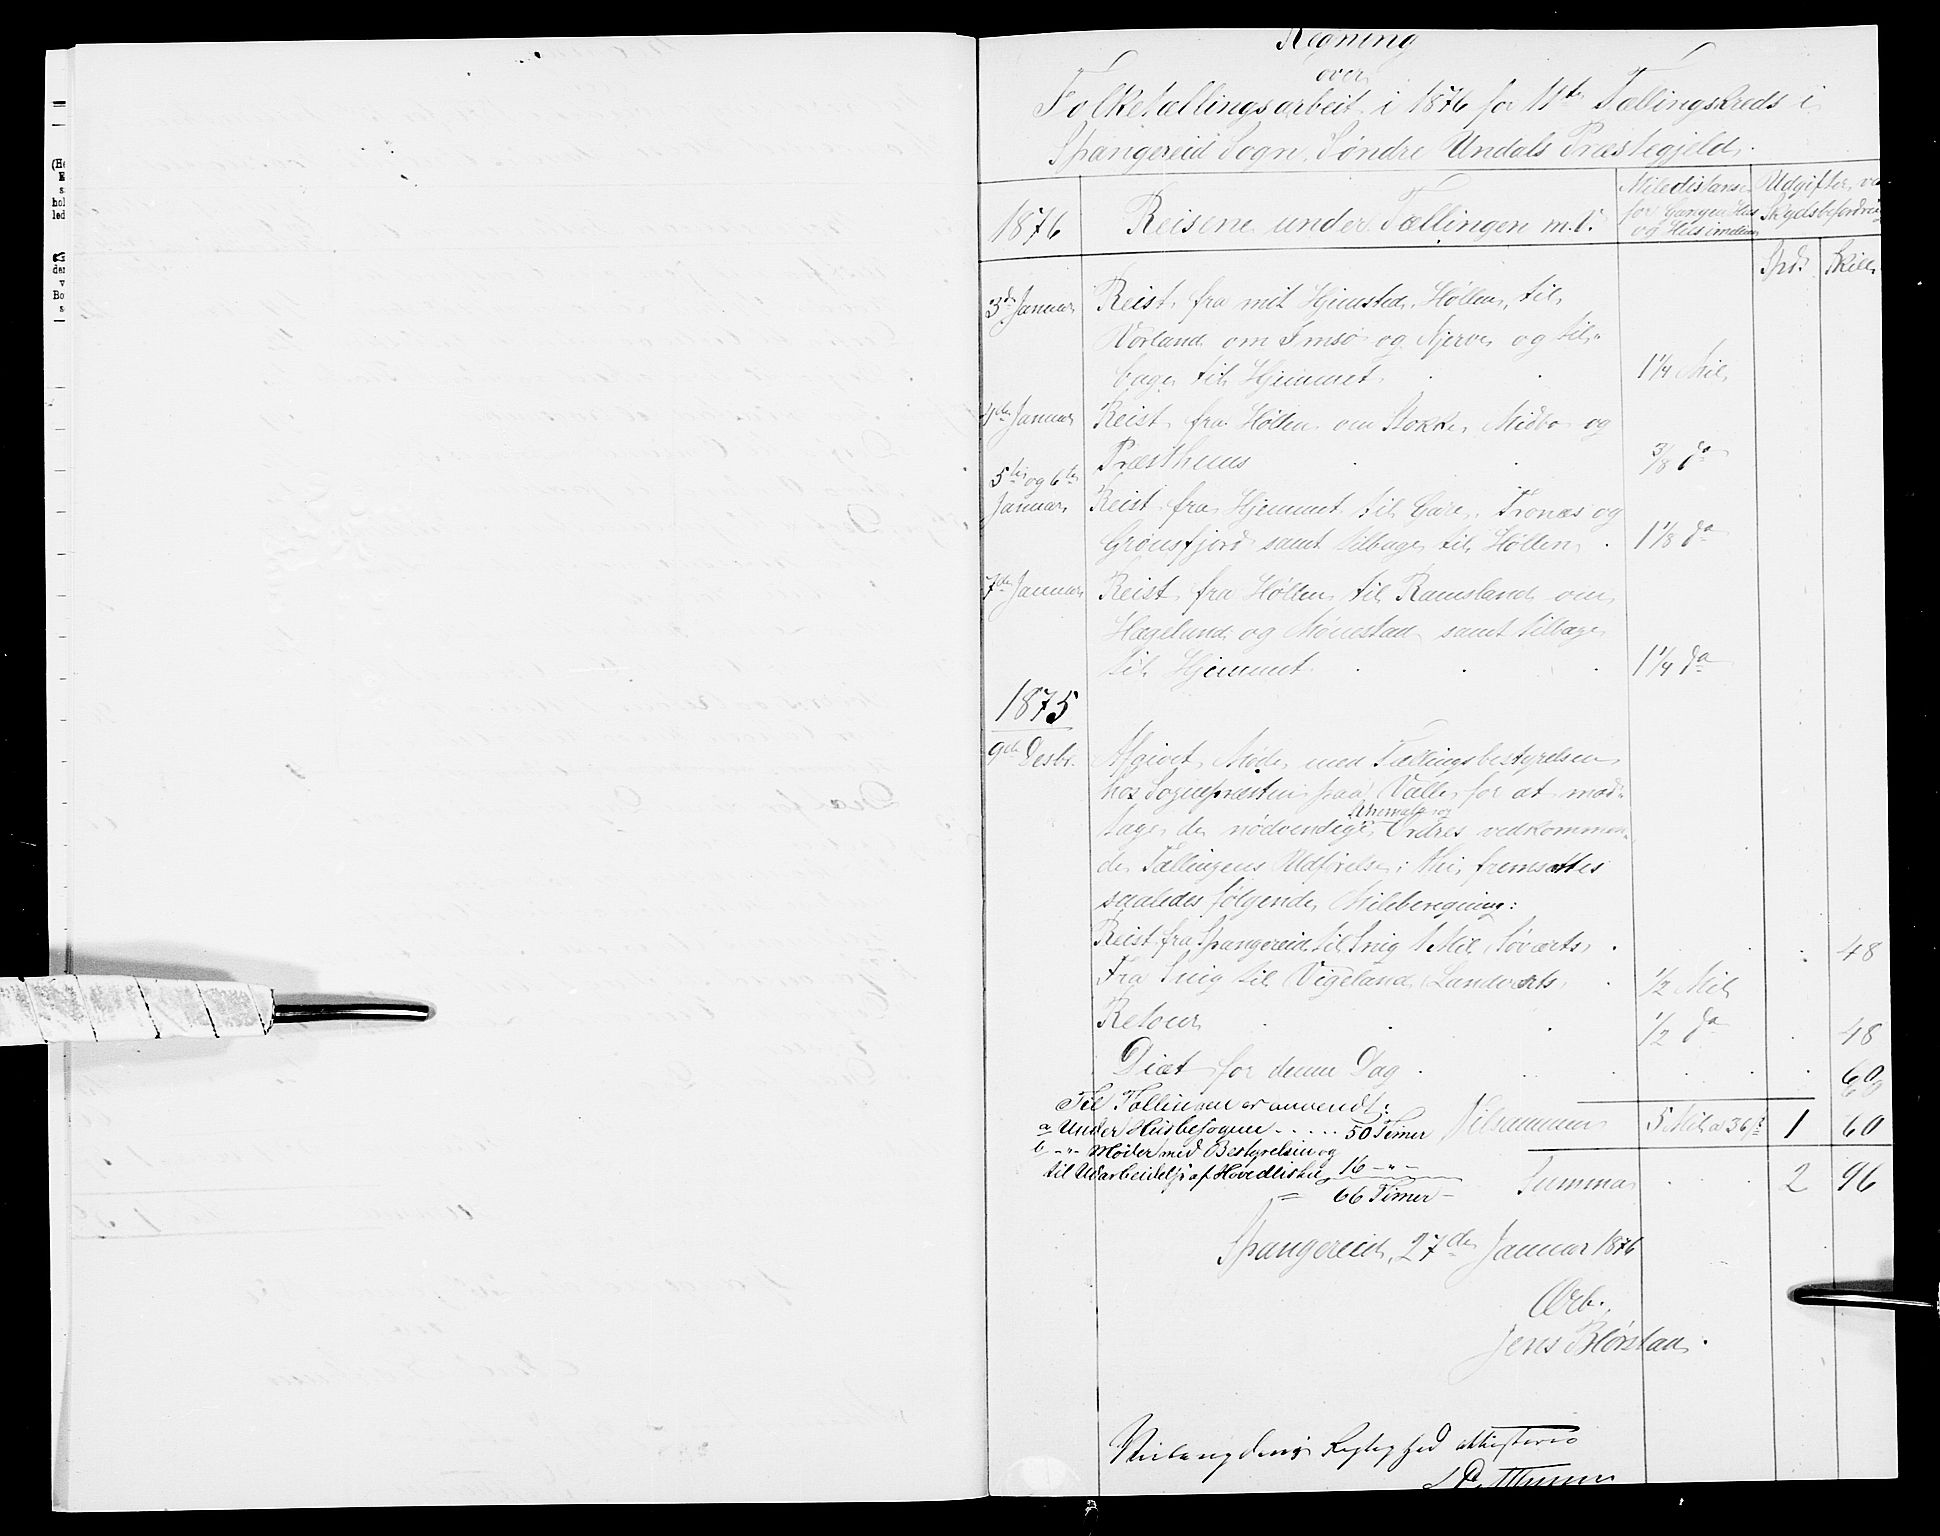 Regning
over
Folketællingsarbeit i 1876 for 11te Tællingskreds i
Spangereid Sogn, Søndre Undals Præstegjeld.
1876 Reisene under Tællingen m.V. Miledistanse for Gangen Huus og Huus imellem Udgifter ved Skydsbefordring
Spd. Skill.
3de Januar Reist fra mit Hjemsted, Höllen, til
Vorland om Imsø og Njerve og til-
bage til Hjemmet. 1 1/4 Mil
4de Januar Reist fra Höllen om Stokke, Midbø og
Præsthuus 3/8 do
5te og 6te
Januar Reist fra Hjemmet til Gare, Fronæs og
Grönsfjord samt tilbage til Höllen. 1 1/8 do
7de Januar Reist fra Höllen til Ramsland om
Hægelund og Mönestad samt tilbage
til Hjemmet. 1 1/4 do
1875
9de Desbr. Afgivet Møde med Tællingsbestyrelsen
hos Sognepræsten paa Valle for at mod-
Schemata og
tage de nödvendige Ordres vedkommen-
de Tællingens Udførelse; Her fremsættes
saaledes følgende Mileberegning:
Reist fra Spangereid til Snig 1 Mil Søværts 48
Fra Snig til Vigeland Landværts 1/2 Mil
Retour 1/2 do 48
Diæt for denne Dag 60
Til Tællingen er anvendt:
a Under Husbesøgene ..... 50 Timer Tilsammen 5 Mil a 36 s 1 60
b -"- Møder med Bestyrelsen og
til Udarbeidelse af Hovedlisten 16 -"-
= 66 Timer Summa 2 96
Spangereid, 27de Januar 1876
Ærb.
Jens
Rigtighed attesteres